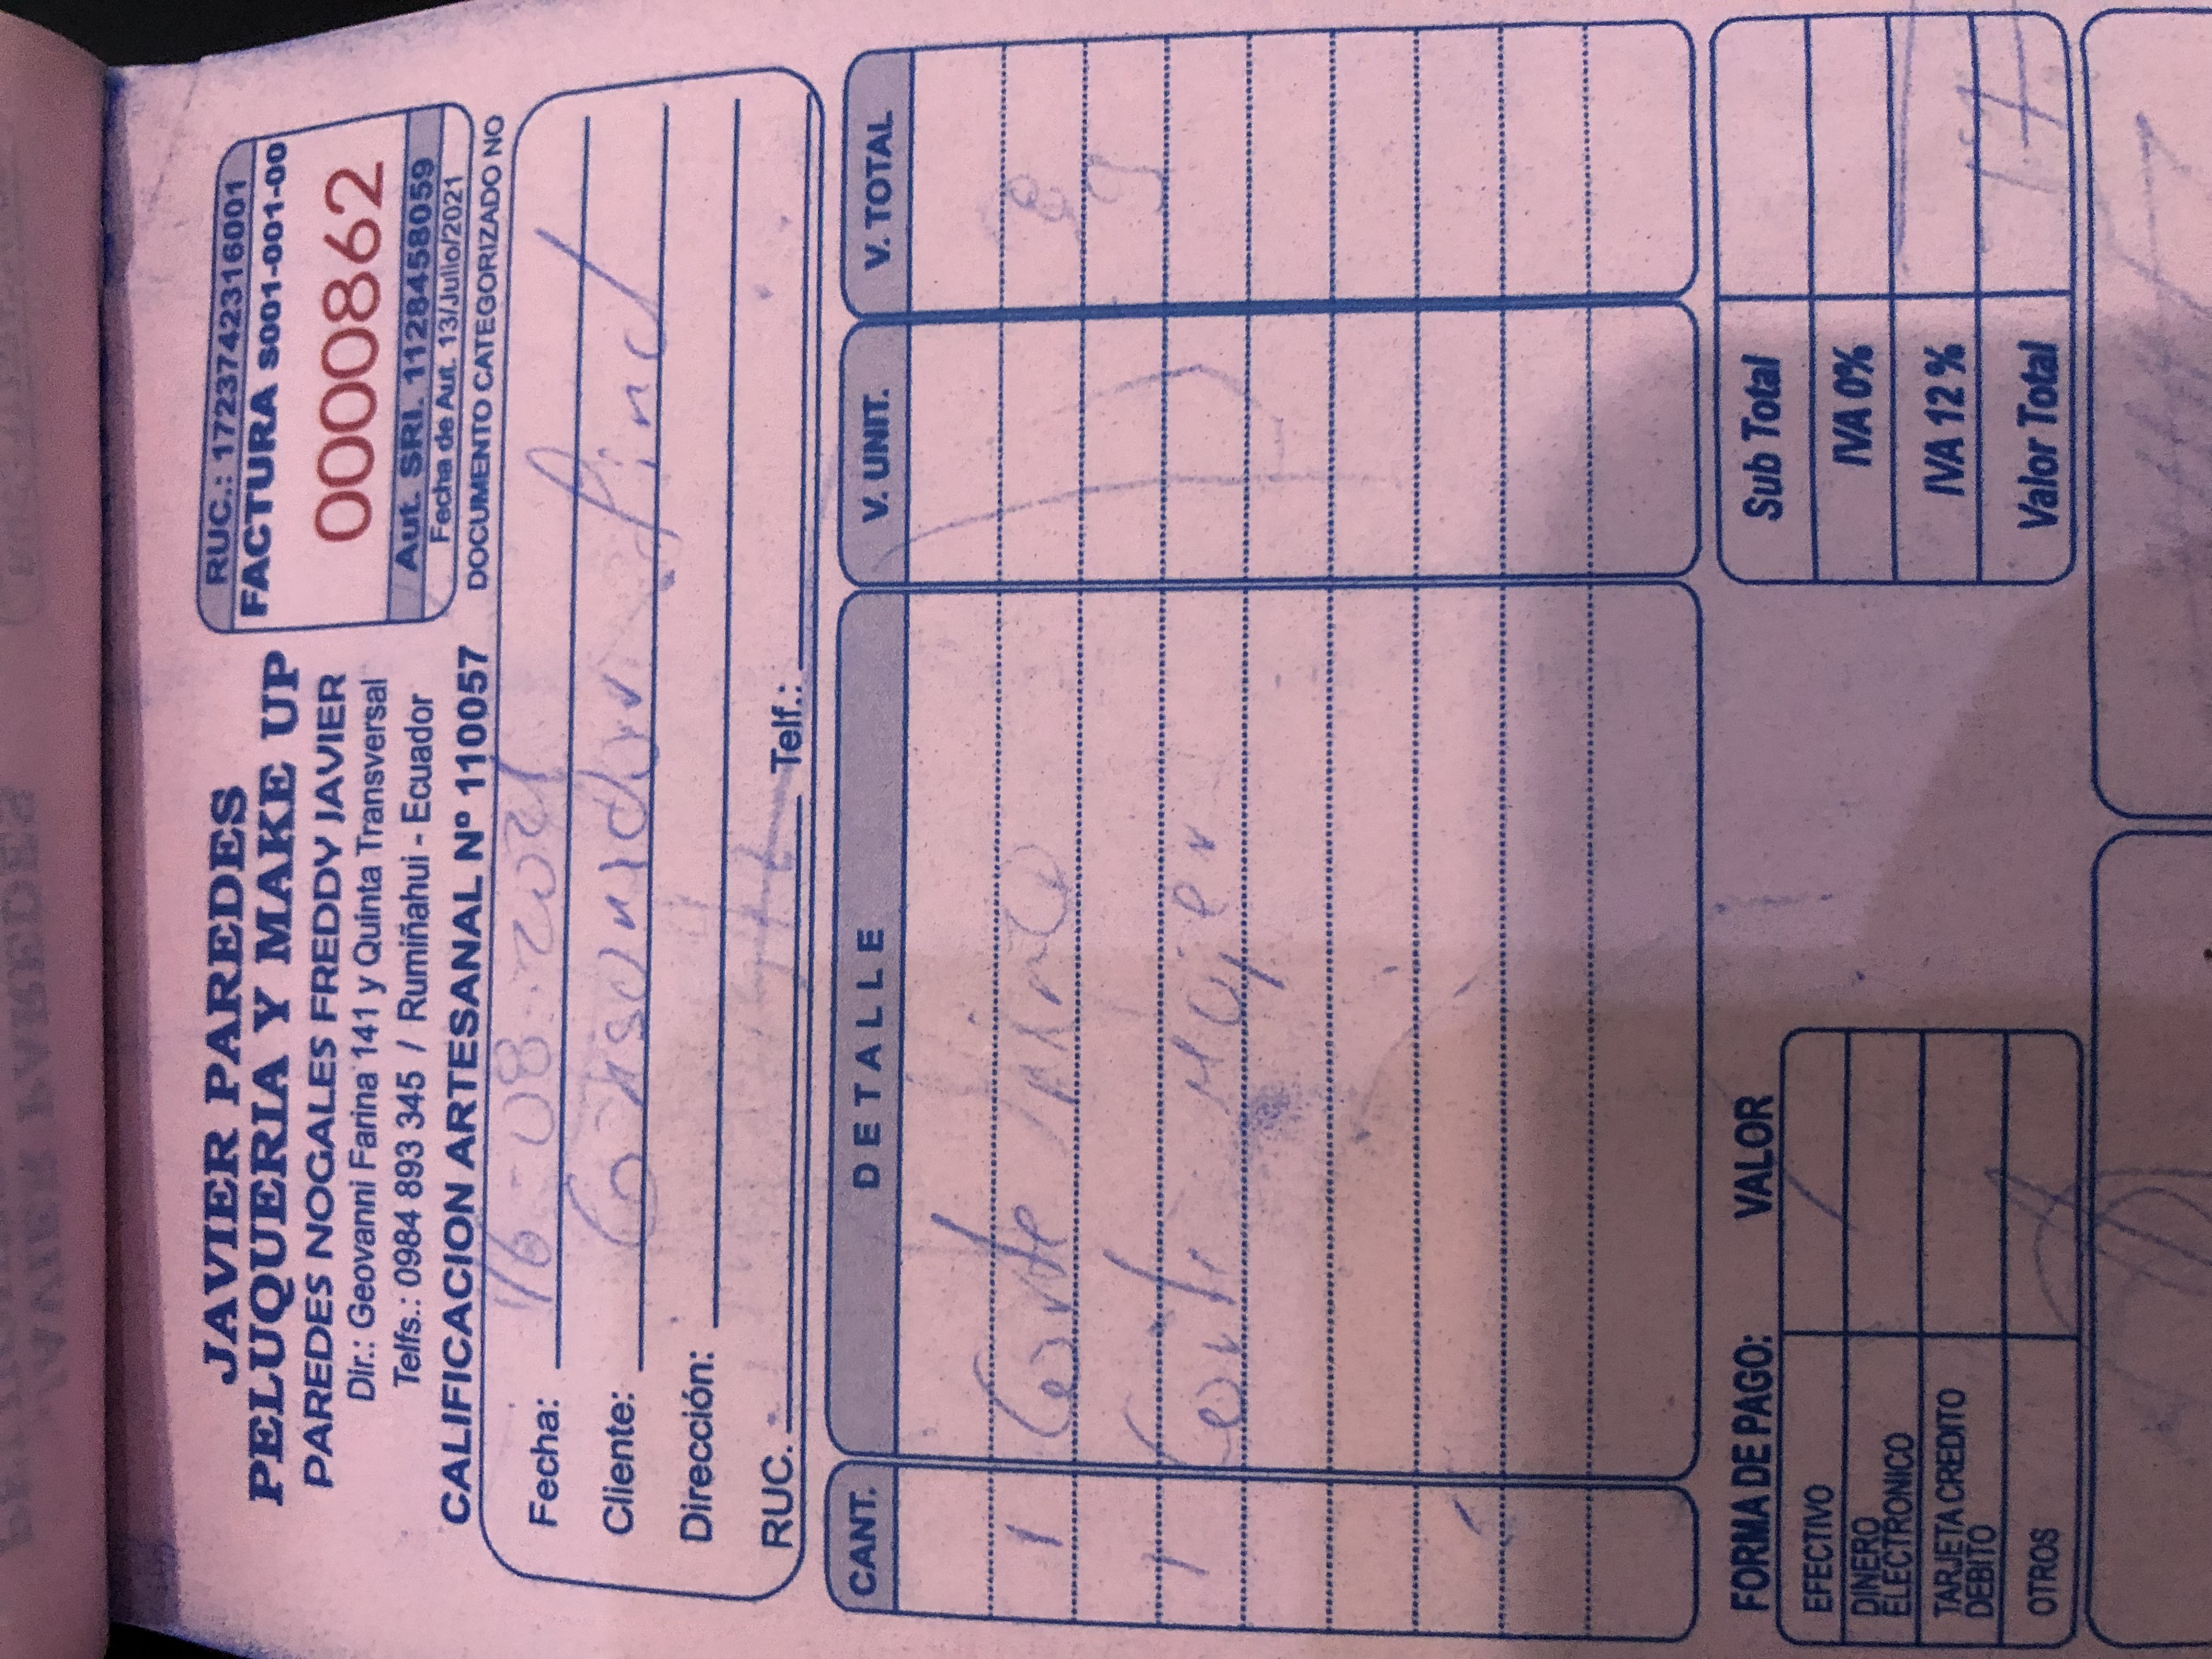 JAVIER PAREDES
PELUQUERIA Y MAKE UP
PAREDES NOGALES FREDDY JAVIER
Dir.: Geovanni Farina 141 y Quinta Transversal
Telfs.: 0984 893 345 / Rumiñahui - Ecuador
CALIFICACION ARTESANAL Nº 110057
RUC.: 1723742316001
FACTURA S001-001-00
0000862
Aut. SRI. 1128458059
Fecha de Aut. 13/Julio/2021
DOCUMENTO CATEGORIZADO NO
Fecha: 16-08-2021
Cliente: Consumidor final
Dirección:
RUC. Telf.:
CANT. DETALLE V. UNIT. V. TOTAL
1 Corte niño 8
1 Corte mujer 9
FORMA DE PAGO: VALOR
EFECTIVO
DINERO
ELECTRONICO
TARJETA CREDITO
DEBITO
OTROS
Sub Total
IVA 0%
IVA 12 %
Valor Total 17